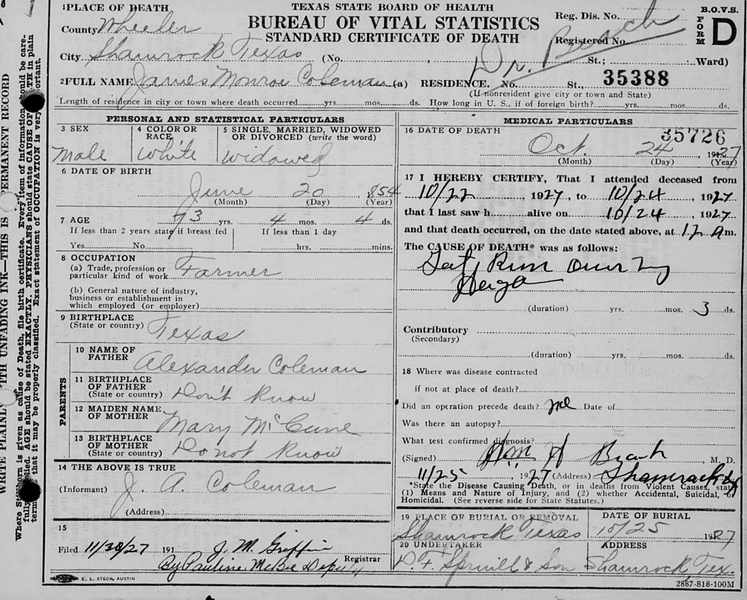 1 PLACE OF DEATH
TEXAS STATE BOARD OF HEALTH
B.O.V.S.
County Wheeler
BUREAU OF VITAL STATISTICS
Reg. Dis. No.
FORM D
City Shamrock Texas (No.
STANDARD CERTIFICATE OF DEATH
Registered No.
St.; Ward)
2 FULL NAME James Monroe Coleman (a) RESIDENCE. No. St., 35388
(If nonresident give city or town and State)
Length of residence in city or town where death occurred yrs. mos. ds. How long in U. S., if of foreign birth? yrs. mos. ds.
PERSONAL AND STATISTICAL PARTICULARS
3 SEX
4 COLOR OR RACE
5 SINGLE, MARRIED, WIDOWED OR DIVORCED (write the word)
Male White Widowed
6 DATE OF BIRTH
June 20 854
(Month) (Day) (Year)
7 AGE 73 yrs. 4 mos. 4 ds.
If less than 2 years state if breast fed
If less than 1 day
Yes No hrs. min.
8 OCCUPATION
(a) Trade, profession or particular kind of work Farmer
(b) General nature of industry,
business or establishment in
which employed (or employer)
9 BIRTHPLACE
(State or country) Texas
PARENTS
10 NAME OF FATHER Alexander Coleman
11 BIRTHPLACE OF FATHER
(State or country) Don't Know
12 MAIDEN NAME OF MOTHER Mary McCune
13 BIRTHPLACE OF MOTHER
(State or country) Do not Know
14 THE ABOVE IS TRUE
(Informant) J. A. Coleman
(Address)
15
Filed 11/28/27 191 J. M. Griffin
Registrar
By Pauline McBee Deputy
E. L. STECK, AUSTIN
MEDICAL PARTICULARS
35726
16 DATE OF DEATH
Oct. 24 1927
(Month) (Day) (Year)
17 I HEREBY CERTIFY, That I attended deceased from
10/22, 1927, to 10/24 1927
that I last saw h alive on 10/24, 1927
and that death occurred, on the date stated above, at 12 am.
The CAUSE OF DEATH* was as follows:
Run Over by
(duration) yrs. mos. 3 ds.
Contributory
(Secondary)
(duration) yrs. mos. ds.
18 Where was disease contracted
if not at place of death?
Did an operation precede death? Date of
Was there an autopsy?
What test confirmed diagnosis?
(Signed) M. D.
11/25 1927 (Address) Shamrock
*State the Disease Causing Death, or in deaths from Violent Causes, state
(1) Means and Nature of Injury, and (2) whether Accidental, Suicidal, or
Homicidal. (See reverse side for State Statutes.)
19 PLACE OF BURIAL OR REMOVAL
DATE OF BURIAL
Shamrock Texas 10/25 1927
20 UNDERTAKER
ADDRESS
& Son Shamrock, Tex.
2887-818-100M